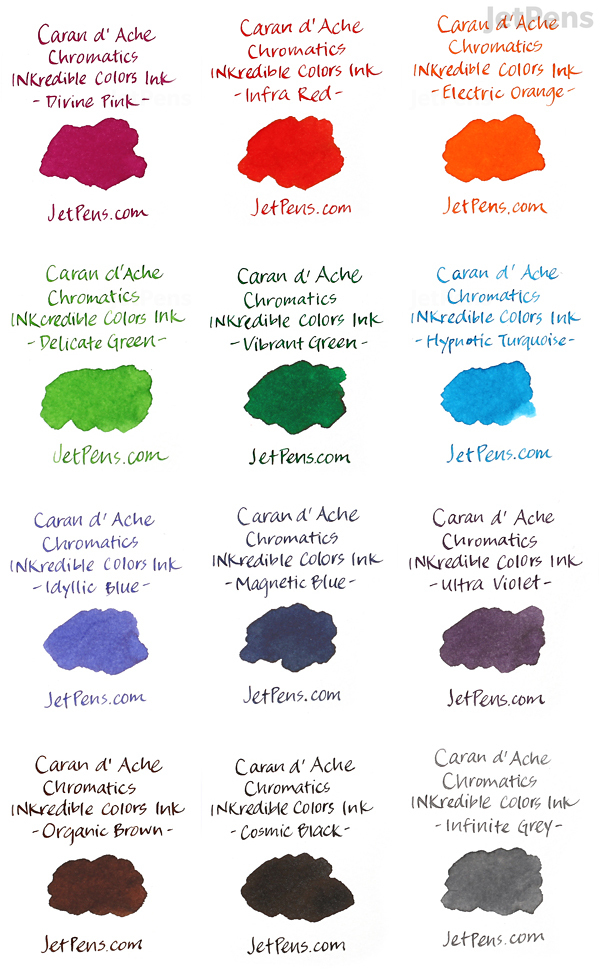 JetPens
Caran d'Ache
Chromatics
INKredible Colors Ink
- Divine Pink -
JetPens.com
Caran d'Ache
Chromatics
INKredible Colors Ink
- Infra Red -
JetPens.com
Caran d'Ache
Chromatics
INKredible Colors Ink
- Electric Orange -
JetPens.com
Caran d'Ache
Chromatics
INKcredible Colors Ink
- Delicate Green -
JetPens.com
Caran d'Ache
Chromatics
INKredible Colors Ink
- Vibrant Green -
JetPens.com
Caran d'Ache
Chromatics
INKredible Colors Ink
- Hypnotic Turquoise -
JetPens.com
Caran d'Ache
Chromatics
INKredible Colors Ink
- Idyllic Blue -
JetPens.com
Caran d'Ache
Chromatics
INKredible Colors Ink
- Magnetic Blue -
JetPens.com
Caran d'Ache
Chromatics
INKredible Colors Ink
- Ultra Violet -
JetPens.com
Caran d'Ache
Chromatics
INKredible Colors Ink
- Organic Brown -
JetPens.com
Caran d'Ache
Chromatics
INKredible Colors Ink
- Cosmic Black -
JetPens.com
Caran d'Ache
Chromatics
INKredible Colors Ink
- Infinite Grey -
JetPens.com